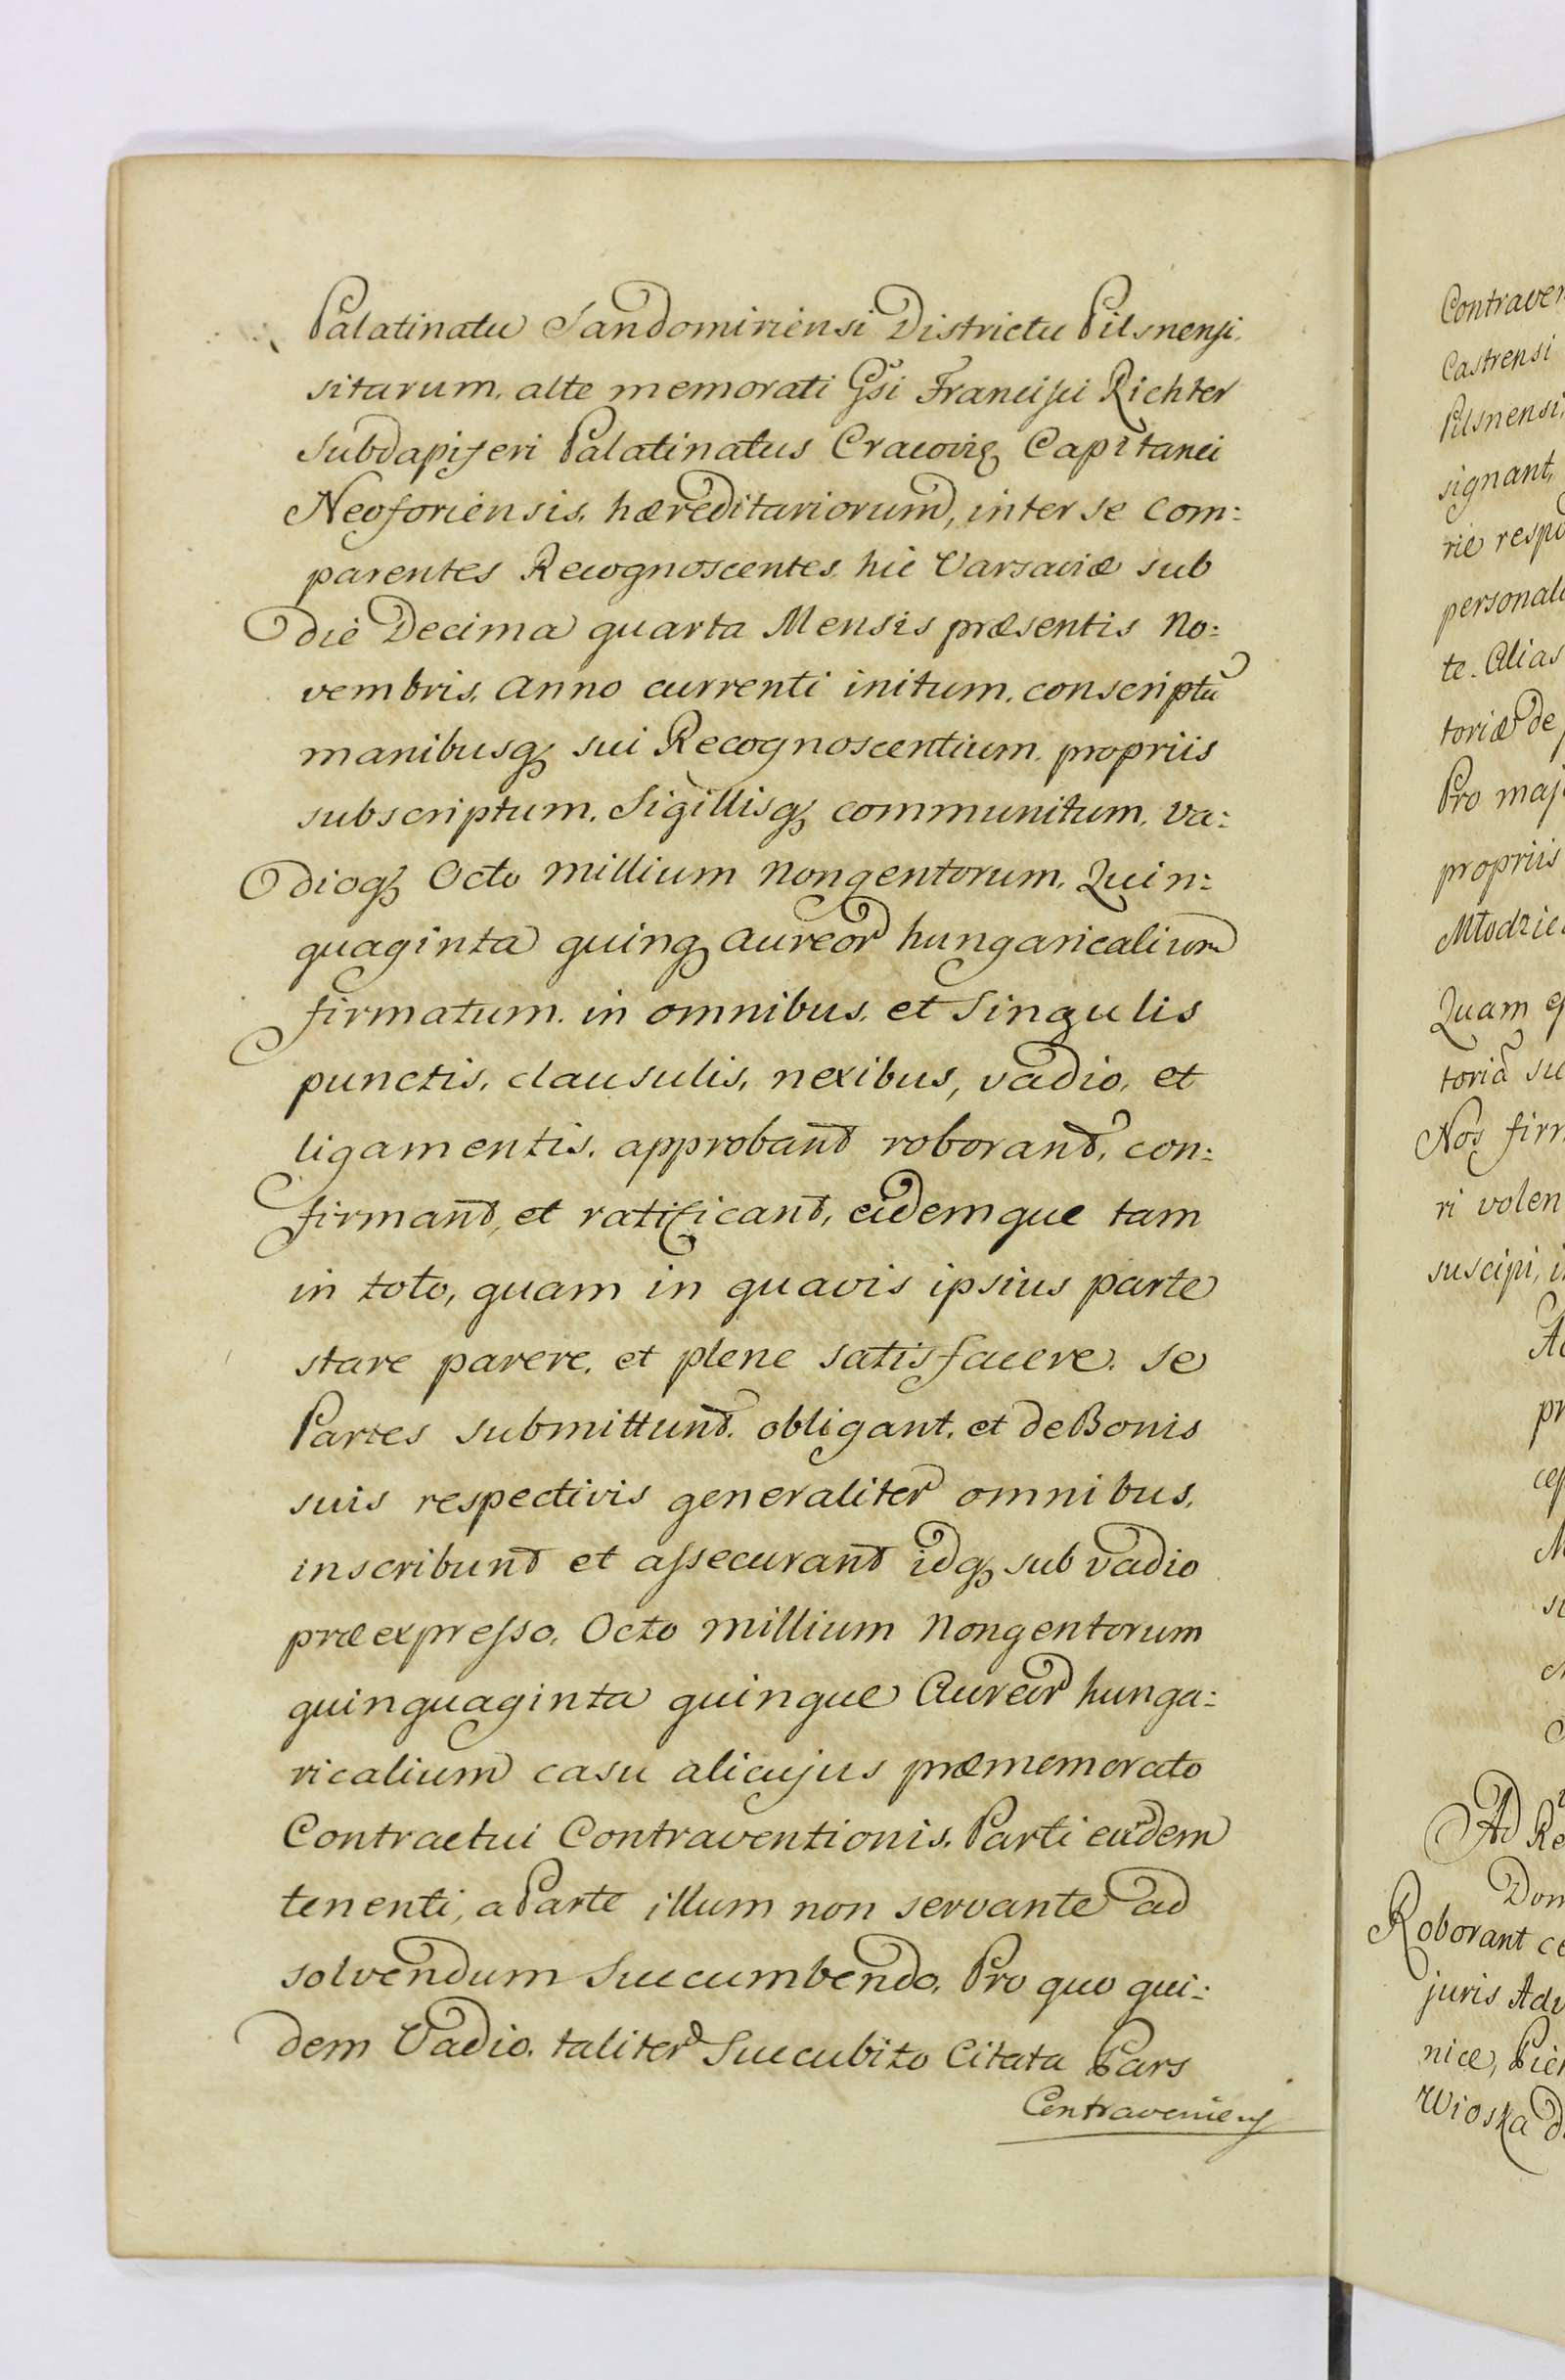 Palatinatu Sandomiriensi Districtu Pilsnensi
sitarum. alte memorati Gsi Francisci Richter
Subdapiferi Palatinatus Cracovię Capitanei
Neoforiensis. hæreditariorum, inter se Com:
parentes Recognoscentes. hic Varsaviæ sub
die Decima quarta Mensis præsentis No:
vembris. Anno currenti initum. conscriptū
manibusq₃ sui Recognoscentium. propriis
subscriptum. Sigillisq₃ communitum. Va:
dioq₃ Octo Millium Nongentorum. Quin:
quaginta quinq₃ aureor hungaricalium
firmatum. in omnibus. et Singulis
punctis. clausulis, nexibus, vadio, et
ligamentis. approbant roborant, con:
firmant, et ratificant, eidemque tam
in toto, quam in quavis ipsius parte
stare parere. et plene satisfacere. se
Partes submittunt. obligant. et de Bonis
suis respectivis generaliter omnibus.
inscribunt et assecurant idq₃ sub vadio
præexpresso. Octo Millium Nongentorum
quinquaginta quinque Aureor hunga:
ricalium casu alicujus præmemorato
Contractui Contraventionis. Parti eidem
tenenti, a Parte illum non servante ad
solvendum Succumbendo. Pro quo qui:
dem Vadio. taliter Succubito Citata Pars
Contraveniens
Contraven
Castrensi
Pilsnensi
signant,
rie respo
personal
te. Alias
toriæ de
Pro maj
propriis
Młodzie
Quam
toriā su
Nos firm
ri volen
suscipi, i
Ad
Don
Roborant ce
juris Adv
nice,
Wioska d